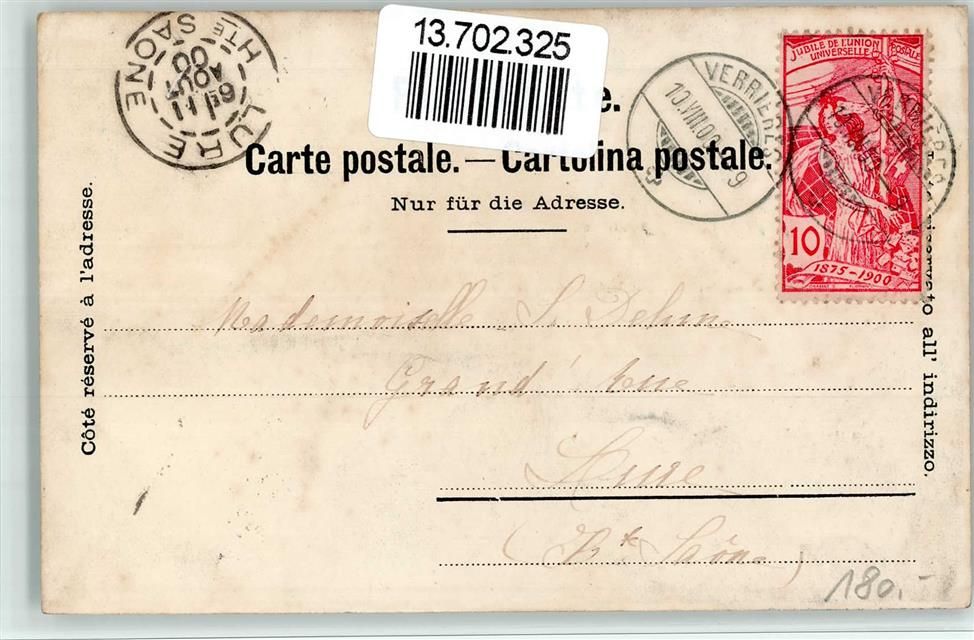 13.702.325
LURE
HTE SAONE
6E 11
AOUT
00
e.
Carte postale. — Cartolina postale.
Nur für die Adresse.
Côté réservé à l'adresse.
riservato all' indirizzo.
VERRIÈRES
10.VIII.00. 9
JUBILÉ DE L'UNION
POSTALE
UNIVERSELLE
10
1875-1900
Mademoiselle S.
Grand' Rue
Lure
(Hte Saône)
180.-